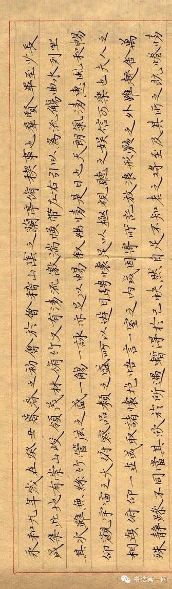 永和九年歲在癸丑暮春之初會於會稽山陰之蘭亭脩禊事也羣賢畢至少長
咸集此地有崇山峻領茂林脩竹又有清流激湍暎帶左右引以為流觴曲水列坐
其次雖無絲竹管弦之盛一觴一詠亦足以暢敘幽情是日也天朗氣清惠風和暢
仰觀宇宙之大俯察品類之盛所以遊目騁懷足以極視聽之娛信可樂也夫人之
相與俯仰一世或取諸懷抱悟言一室之內或因寄所託放浪形骸之外雖趣舍萬
殊靜躁不同當其欣於所遇暫得於己快然自足不知老之將至及其所之既惓情